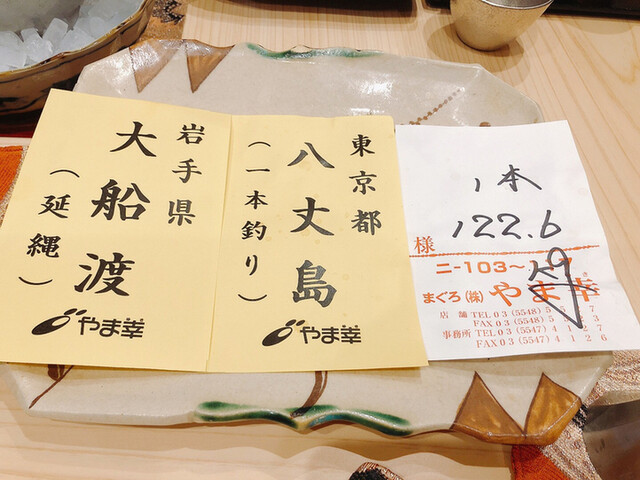 岩手県
大船渡
（延縄）
やま幸
東京都
八丈島
（一本釣り）
やま幸
1本
122.6
kg
様
ニ-103～
まぐろ(株)やま幸
店舗 TEL 03 (5548) 5 7
FAX 03 (5548) 5 3
事務所 TEL 03 (5547) 4 1 2 7
FAX 03 (5547) 4 1 2 6